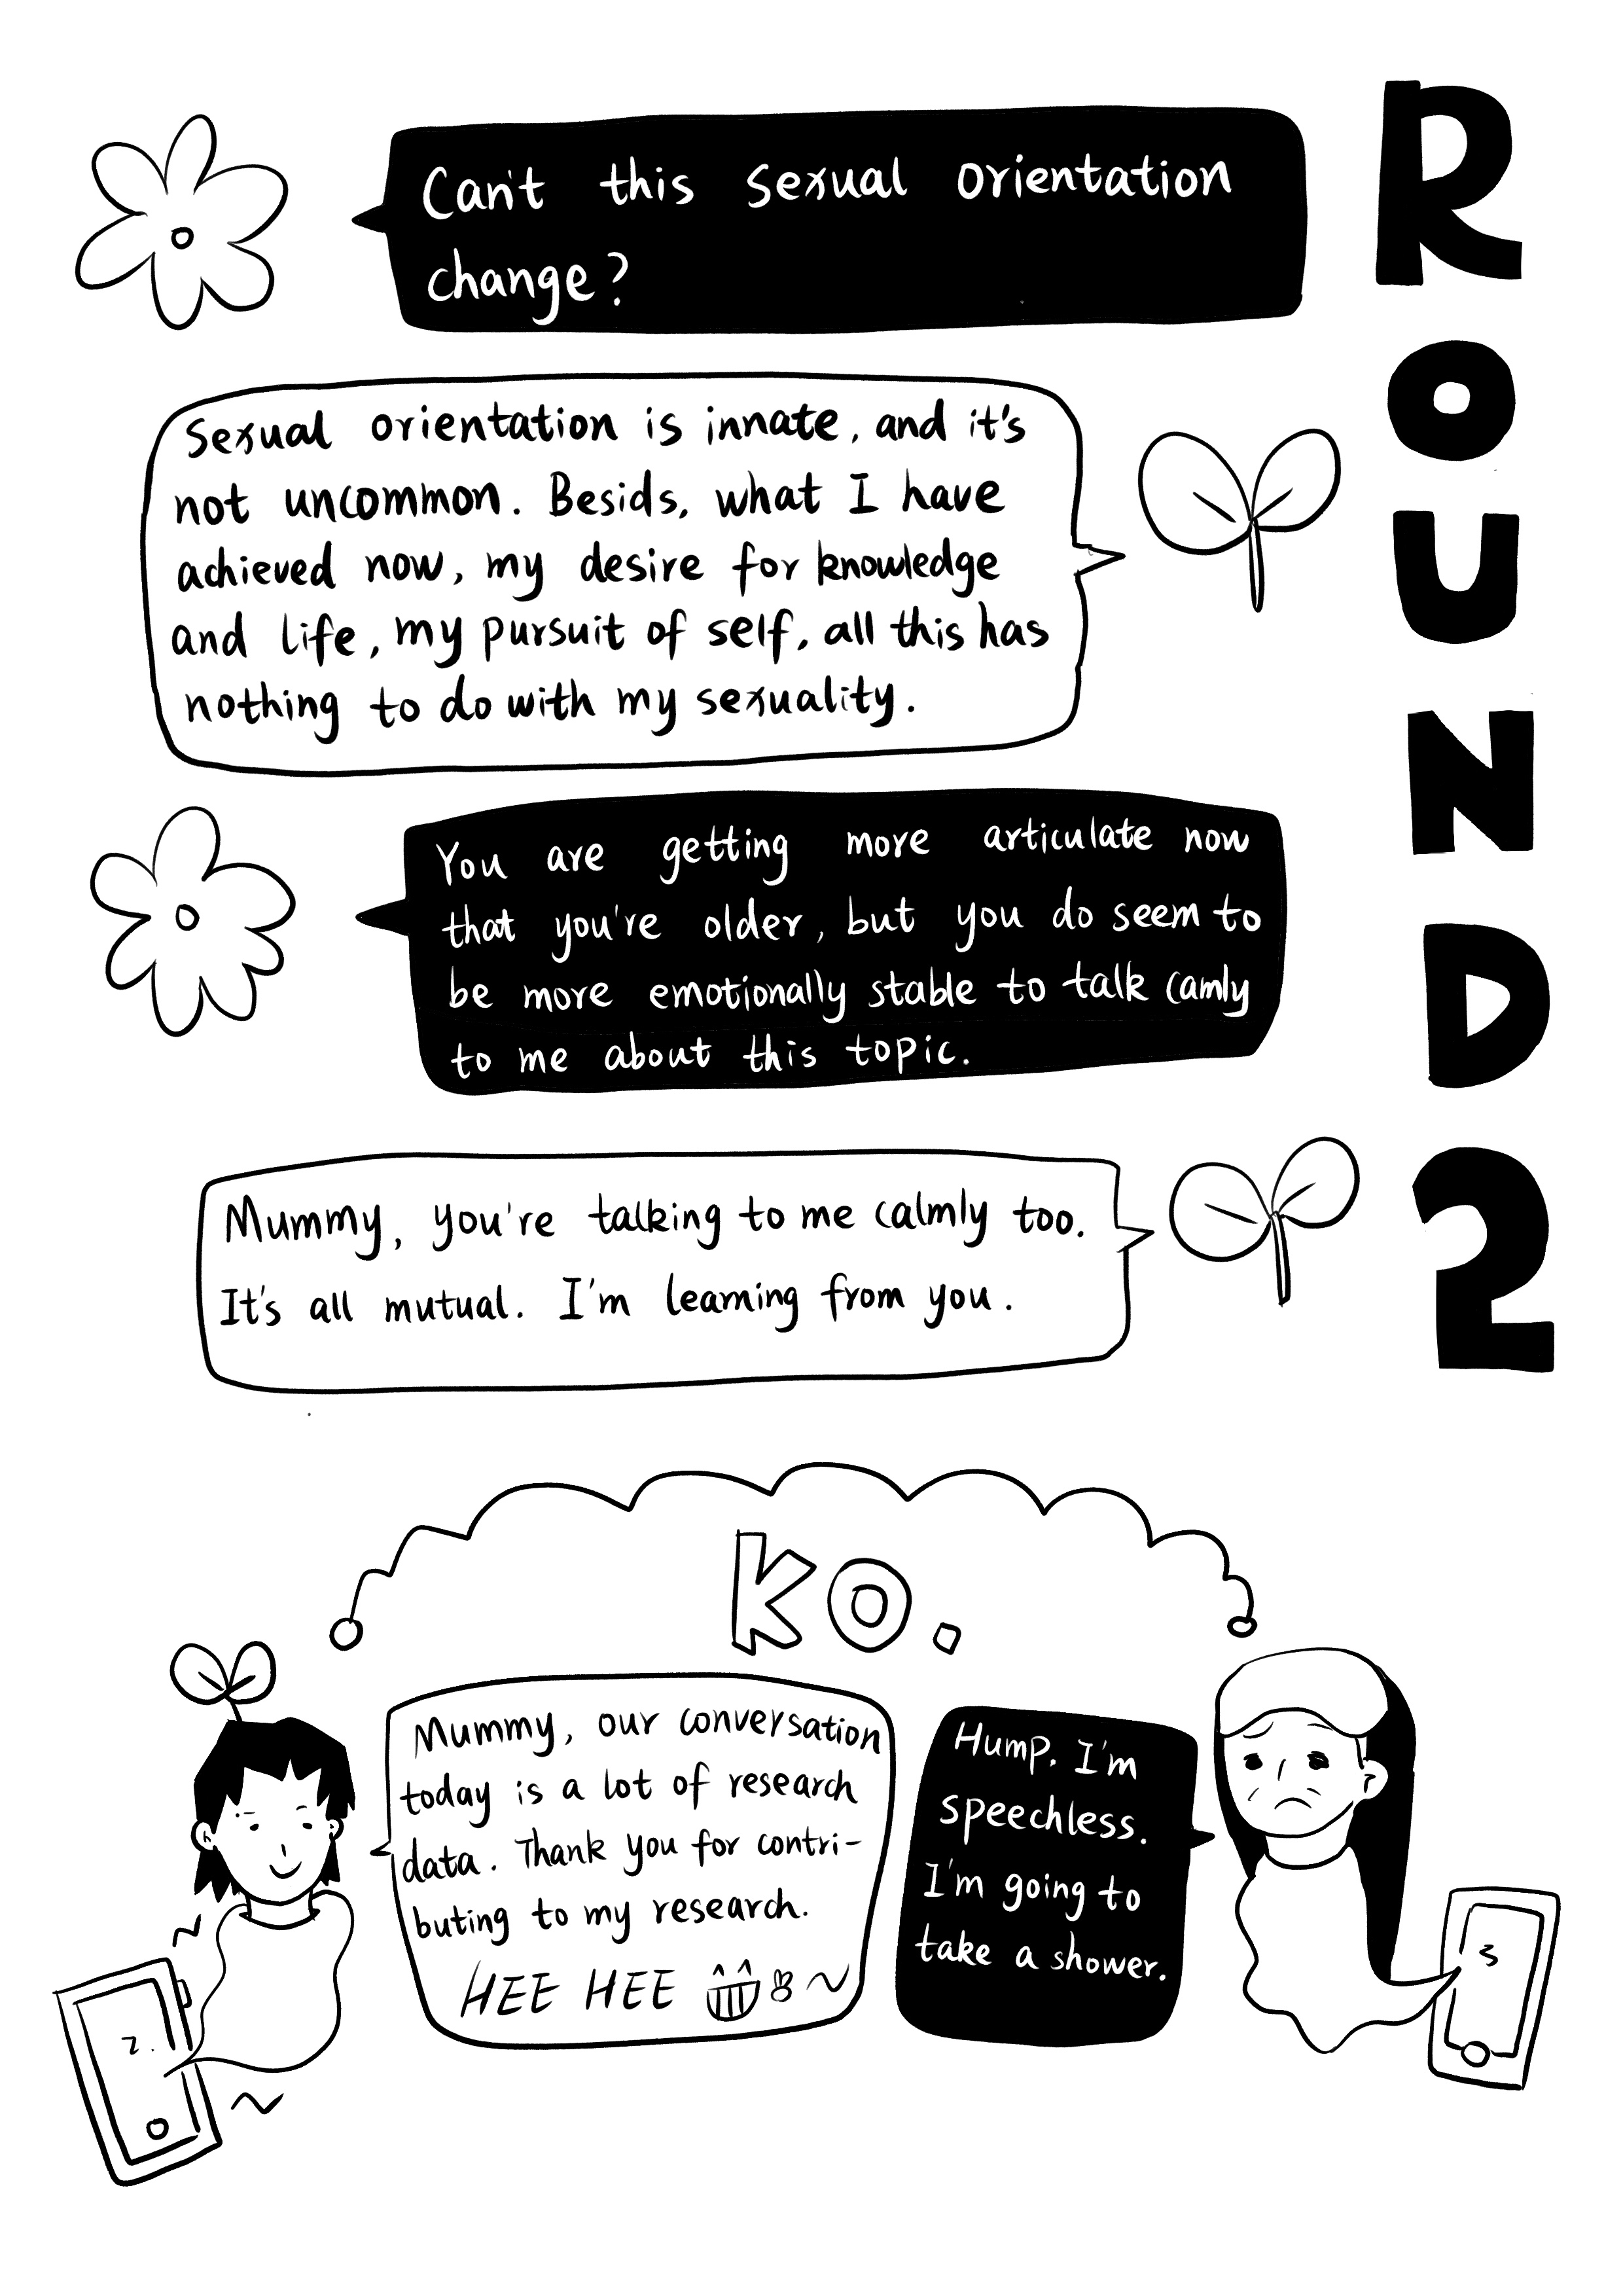 ROUND 2
Can't this sexual orientation
change?
Sexual orientation is innate, and it's
not uncommon. Besids, what I have
achieved now, my desire for knowledge
and life, my pursuit of self, all this has
nothing to do with my sexuality.
You are getting more articulate now
that you're older, but you do seem to
be more emotionally stable to talk camly
to me about this topic.
Mummy, you're talking to me calmly too.
It's all mutual. I'm learning from you.
KO.
Mummy, our conversation
today is a lot of research
data. Thank you for contri-
buting to my research.
HEE HEE
Hump. I'm
speechless.
I'm going to
take a shower.
2.
3